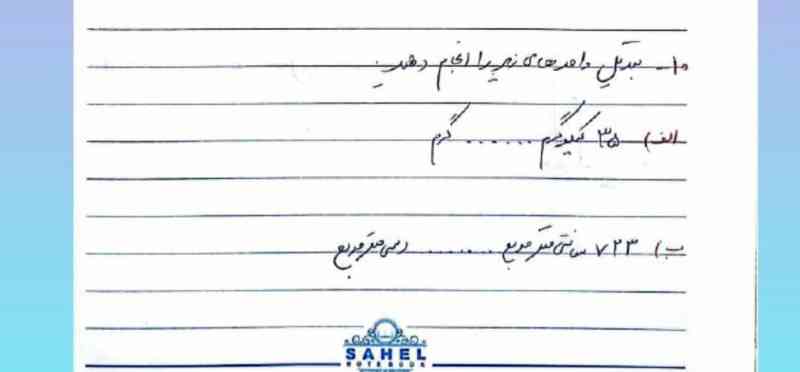 ۱۰- تبدیل واحدهای زیر را انجام دهید.
الف) ۳۵ کیلوگرم ....... گرم
ب) ۷۲۳ سانتی متر مربع ....... دسی متر مربع
SAHEL
NOTEBOOK